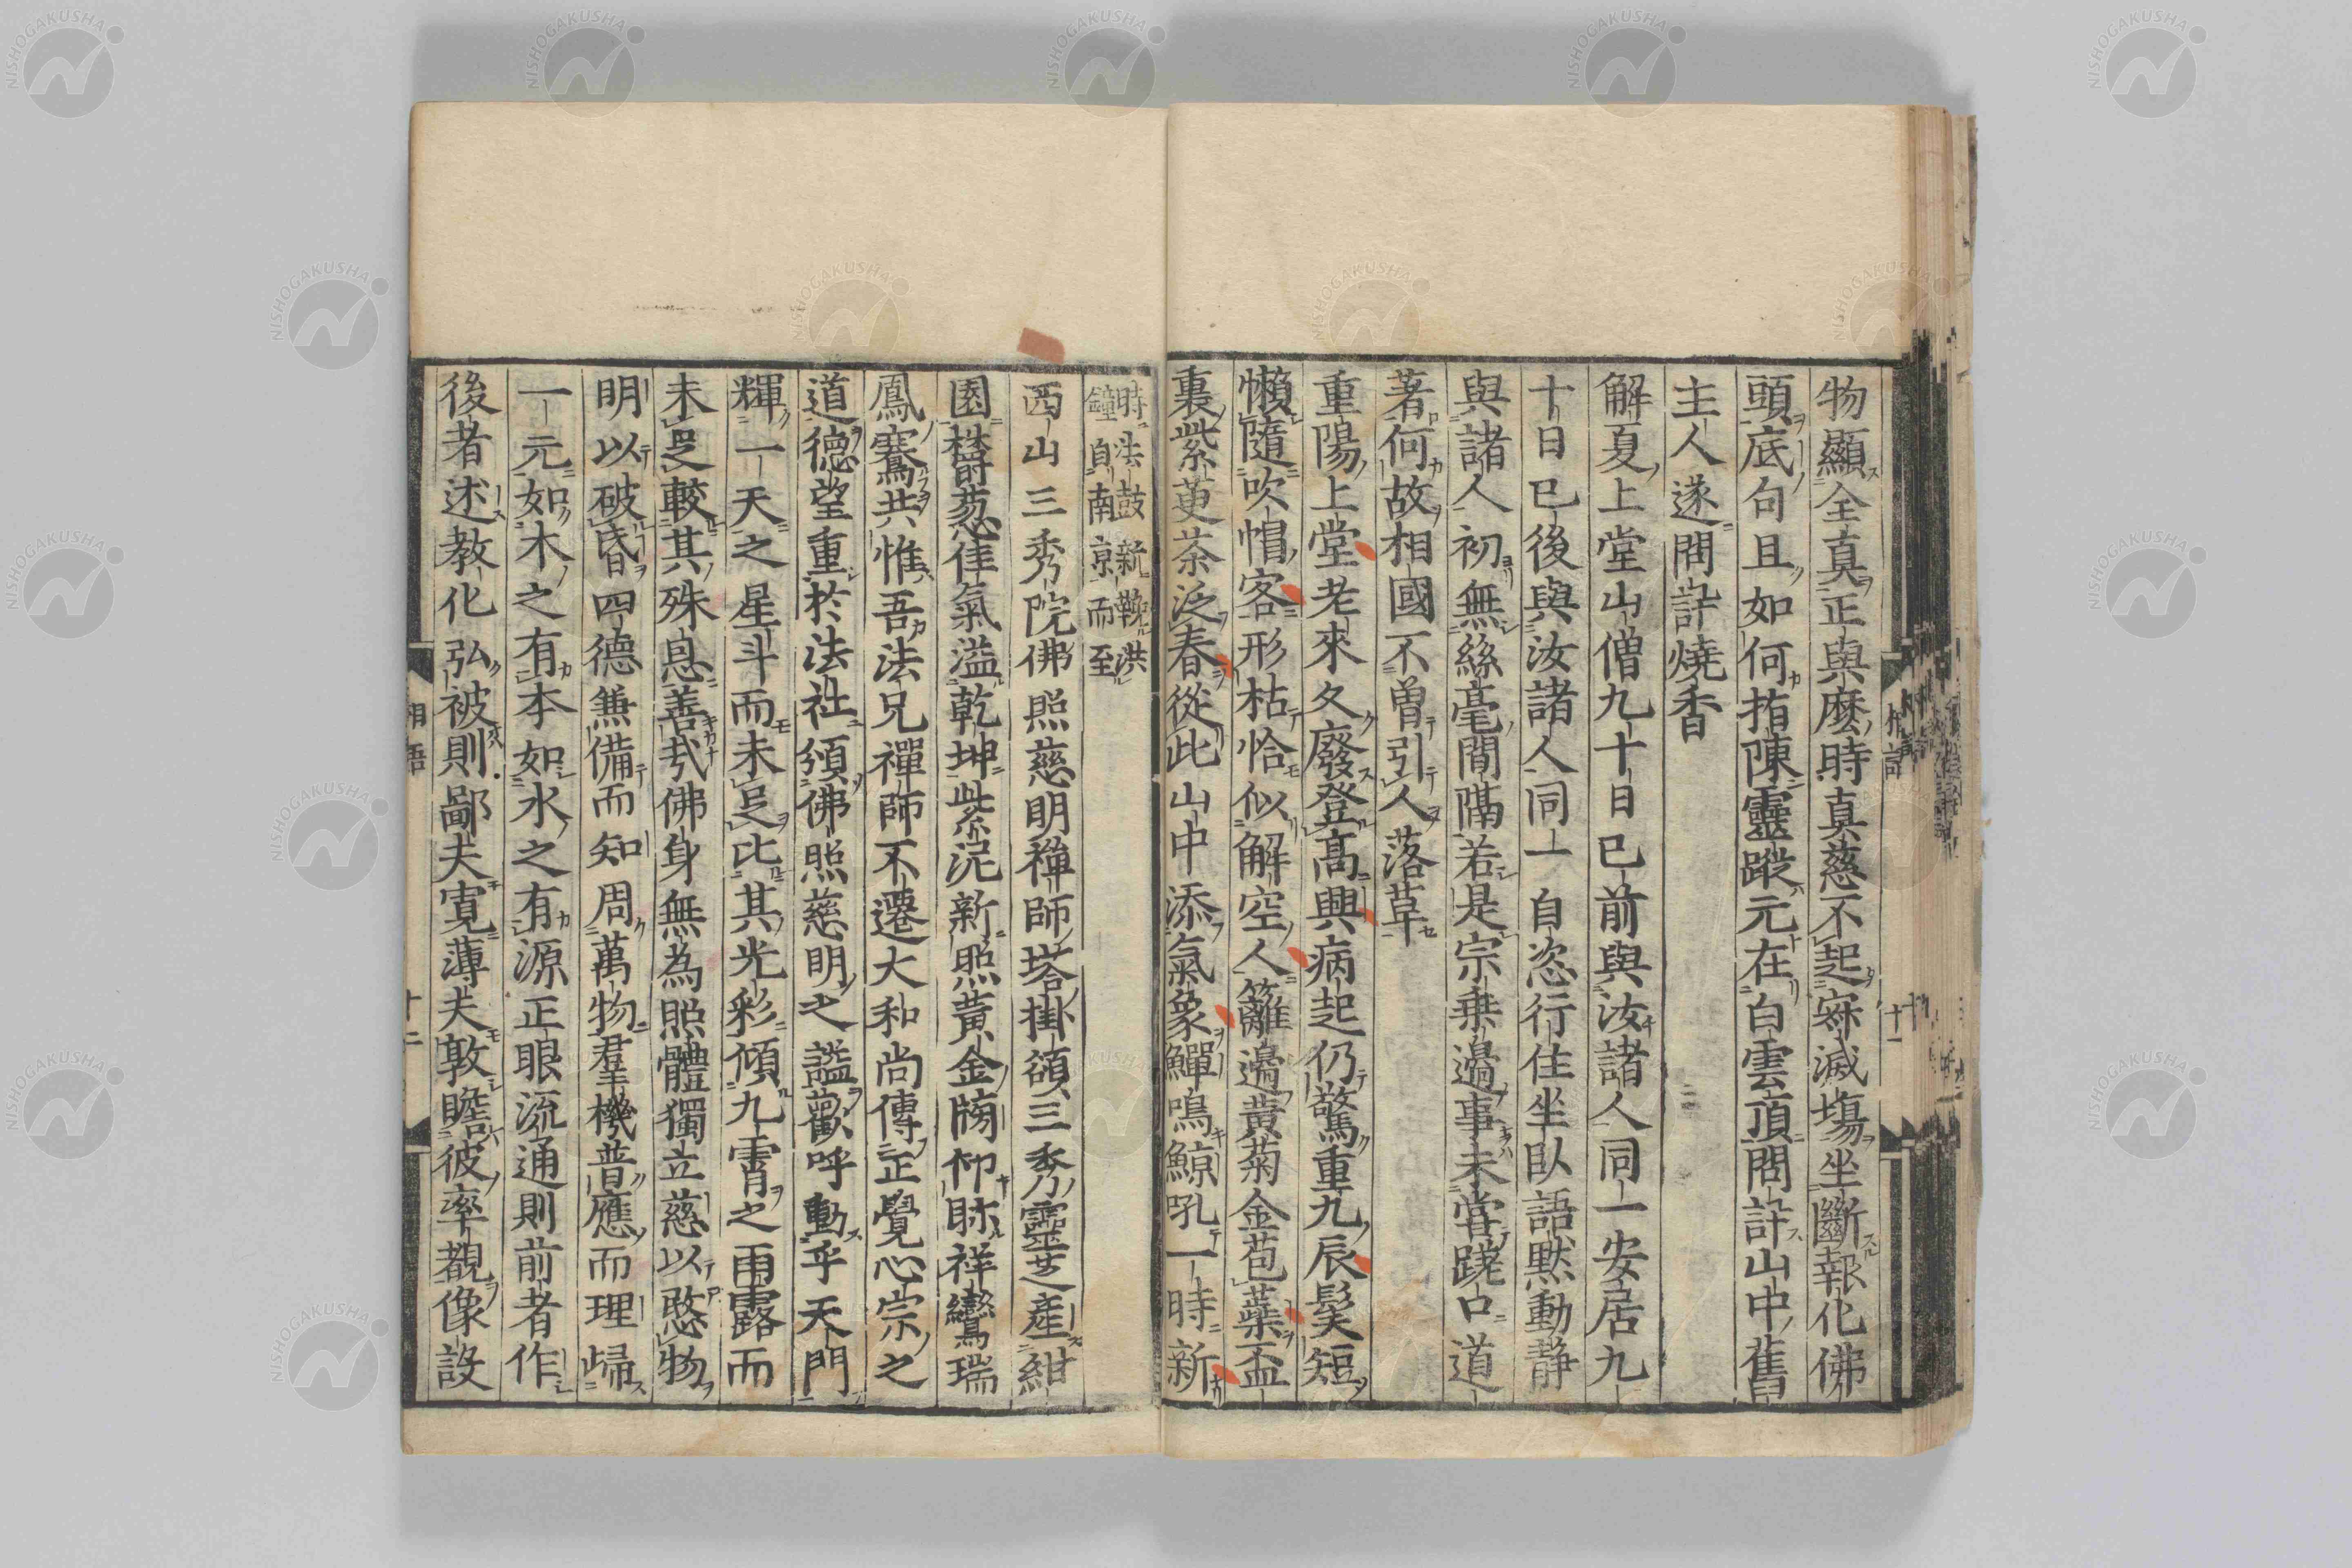 物顯全真正與麽時真慈不起寂滅塲坐斷報化佛
頭底句且如何指陳靈蹤元在白雲頂問訐山中舊
主人遂問訐燒香
解夏上堂山僧九十日已前與汝諸人同一安居九
十日已後與汝諸人同一自恣行住坐臥語默動靜
與諸人初無絲毫間隔若是宗乗邊事未甞蹺口道
著何故相國不曽引人落草
重陽上堂老來久廢登髙興病起仍驚重九辰髮短
懶隨吹帽客形枯恰似解空人籬邊黃菊金苞蘂盃
裏紫萸茶泛春從此山中添氣象鱓鳴鯨吼一時新
時法鼓新鞔洪
鐘自南京而至
西山三秀院佛照慈明禪師塔掛額三秀靈芝産紺
園欝葱佳氣溢乾坤紫泥新照黃金牓仰眎祥鸞瑞
鳳騫共惟吾法兄禪師不遷大和尚傳正覺心宗之
道德望重於法社領佛照慈明之謚歡呼動乎天門
輝一天之星斗而未足比其光彩傾九霄之雨露而
未足較其殊息善㢤佛身無為照體獨立慈以愍物
明以破昏四德無備而知周萬物羣機普應而理歸
一元如木之有本如水之有源正眼流通則前者作
後者述教化弘被則鄙夫寛薄夫敦瞻彼率覩像設
相語
十二
十一
NISHOGAKUSHA